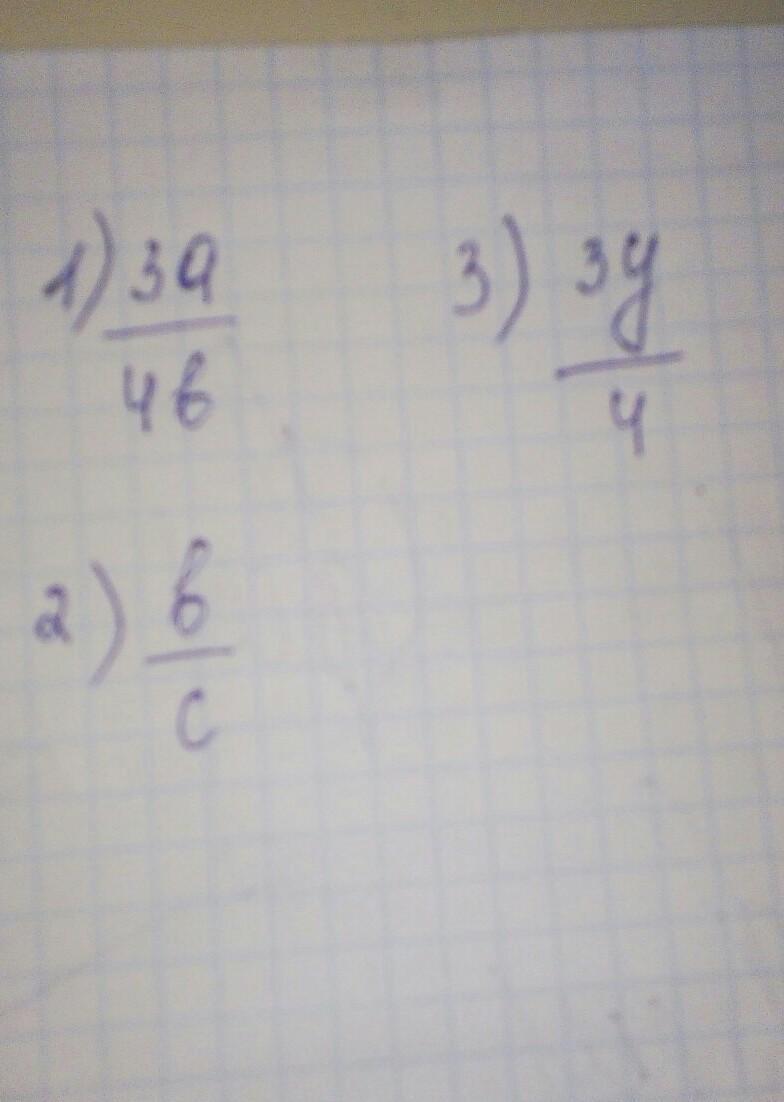 1) 3a
4b
3) 3y
4
2) b
c